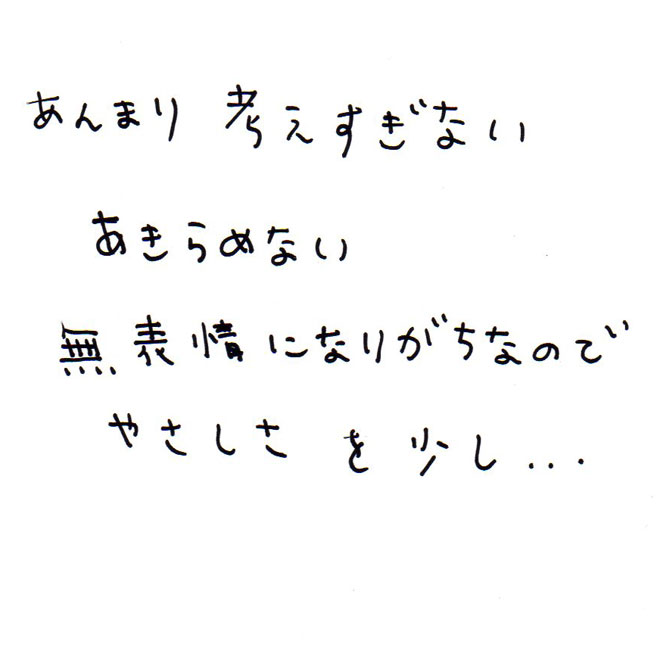 あんまり 考えすぎない
あきらめない
無表情になりがちなので
やさしさ を 少し...